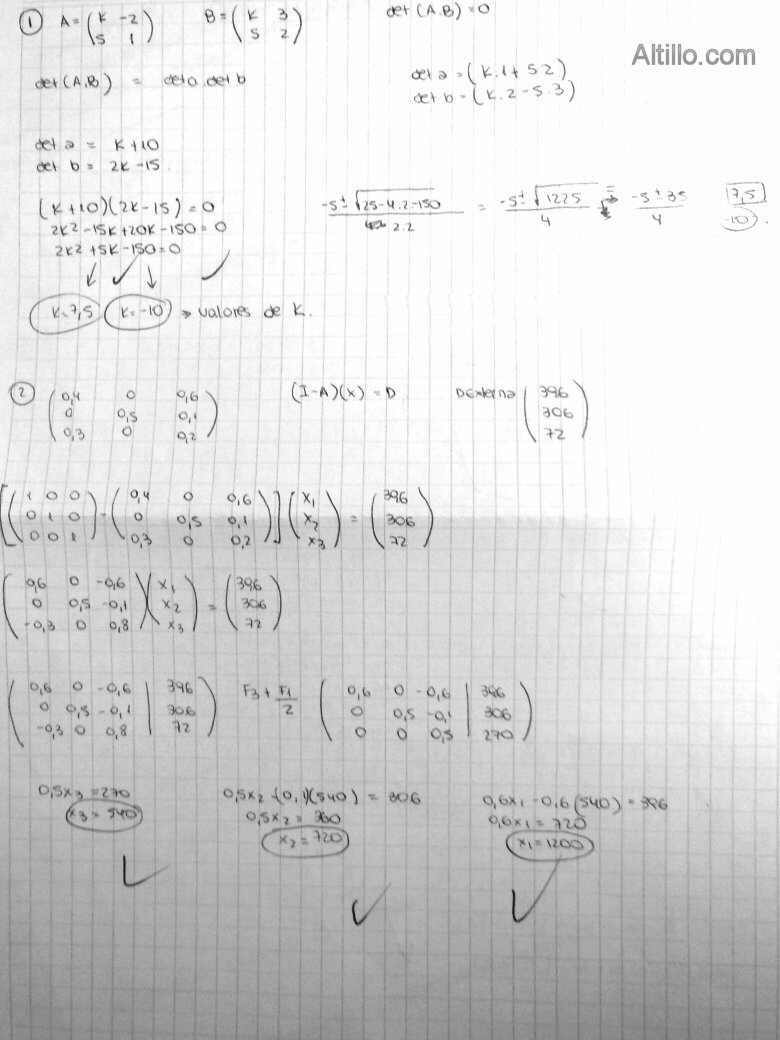 ① A = (K -2 / 5 1)   B = (K 3 / 5 2)   det (A.B) = 0
Altillo.com
det (A.B) = det a . det b
det a = (K.1 + 5.2)
det b = (K.2 - 5.3)
det a = K+10
det b = 2K-15.
(K+10)(2K-15) = 0
2K2 -15K+20K-150 = 0
2K2 +5K-150=0
-5± √25-4.2-150 / 2.2 = -5± √1225 / 4 = -5±35 / 4   7,5   -10.
K=7,5   K=-10 → valores de K.
② (0,4 0 0,6 / 0 0,5 0,1 / 0,3 0 0,2)   (I-A)(x) = D   D Externa (396 / 306 / 72)
[(1 0 0 / 0 1 0 / 0 0 1) - (0,4 0 0,6 / 0 0,5 0,1 / 0,3 0 0,2)] (x1 / x2 / x3) = (396 / 306 / 72)
(0,6 0 -0,6 / 0 0,5 -0,1 / -0,3 0 0,8) (x1 / x2 / x3) = (396 / 306 / 72)
(0,6 0 -0,6 | 396 / 0 0,5 -0,1 | 306 / -0,3 0 0,8 | 72)   F3 + F1/2   (0,6 0 -0,6 | 396 / 0 0,5 -0,1 | 306 / 0 0 0,5 | 270)
0,5x3 = 270
x3 = 540
0,5x2 -(0,1)(540) = 306
0,5x2 = 360
x2 = 720
0,6x1 - 0,6(540) = 396
0,6x1 = 720
x1 = 1200